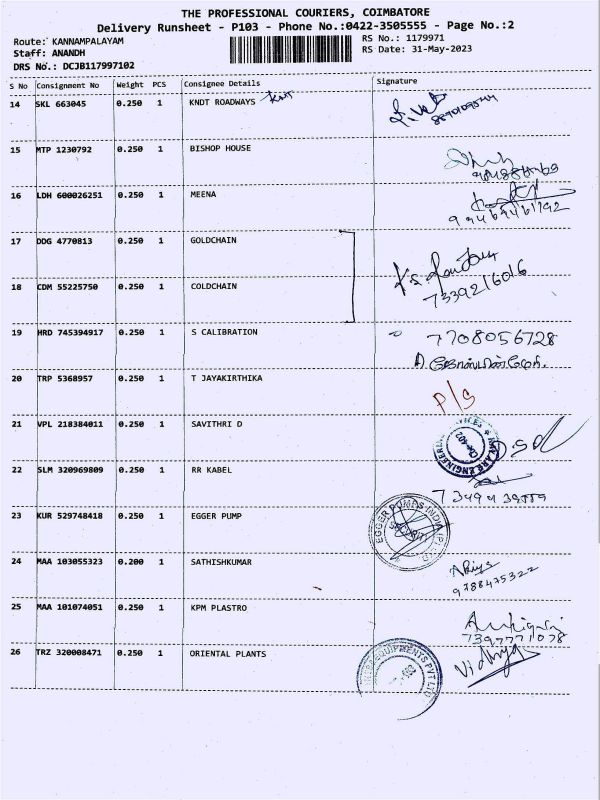 THE PROFESSIONAL COURIERS, COIMBATORE
Delivery Runsheet - P103 - Phone No.:0422-3505555 - Page No.:2
Route: KANNAMPALAYAM
RS No.: 1179971
Staff: ANANDH
RS Date: 31-May-2023
DRS No.: DCJB117997102
S No Consignment No Weight PCS Consignee Details Signature
14 SKL 663045 0.250 1 KNDT ROADWAYS
15 MTP 1230792 0.250 1 BISHOP HOUSE
16 LDH 600026251 0.250 1 MEENA
17 DDG 4770813 0.250 1 GOLDCHAIN
7339216016
18 CDM 55225750 0.250 1 COLDCHAIN
19 HRD 745394917 0.250 1 S CALIBRATION 7708056728
20 TRP 5368957 0.250 1 T JAYAKIRTHIKA P/S
21 VPL 218384011 0.250 1 SAVITHRI D
22 SLM 320969809 0.250 1 RR KABEL
23 KUR 529748418 0.250 1 EGGER PUMP EGGER PUMPS INDIA (P) LTD
24 MAA 103055323 0.200 1 SATHISHKUMAR
9788475322
25 MAA 101074051 0.250 1 KPM PLASTRO
7397771078
26 TRZ 320008471 0.250 1 ORIENTAL PLANTS EQUIPMENTS PVT LTD Vidhya